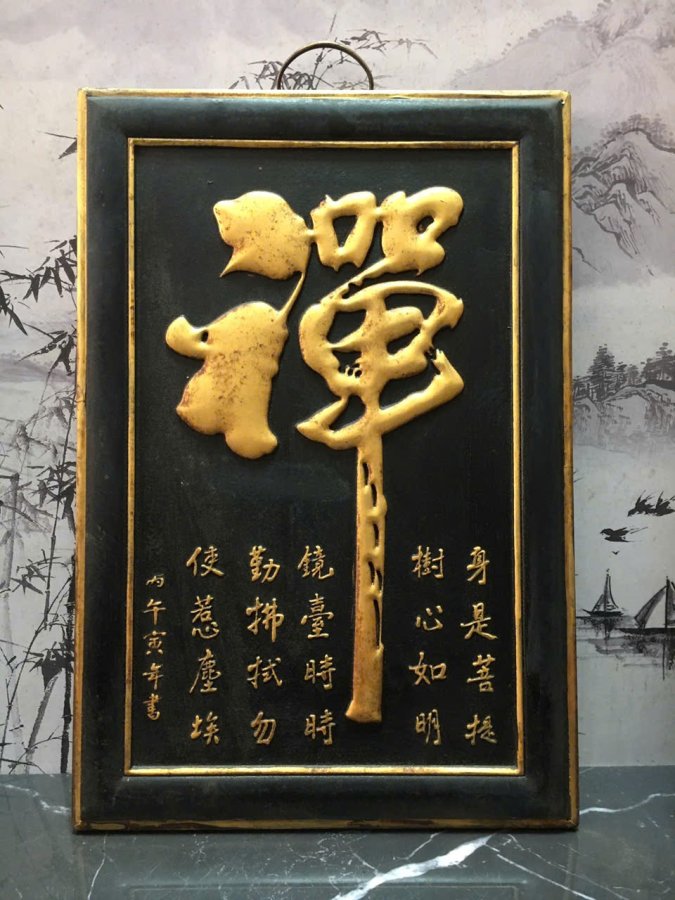 禪
身是菩提
樹心如明
鏡臺時時
勤拂拭勿
使惹塵埃
丙午寅年書